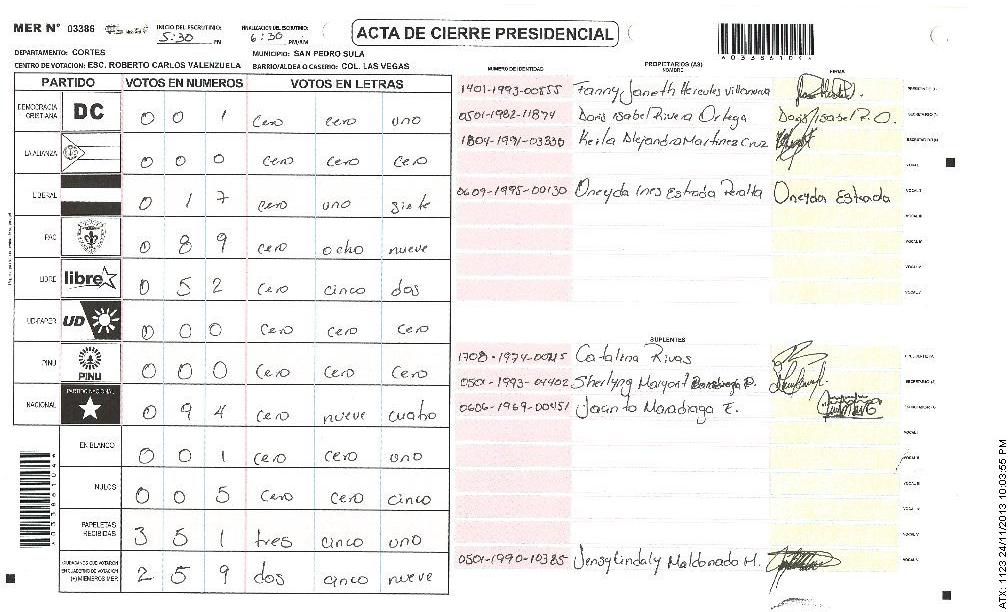 MER N° 03386
INICIO DEL ESCRUTINIO: 5:30 PM
FINALIZACION DEL ESCRUTINIO: 6:30 PM/AM
ACTA DE CIERRE PRESIDENCIAL
DEPARTAMENTO: CORTES
MUNICIPIO: SAN PEDRO SULA
CENTRO DE VOTACION: ESC. ROBERTO CARLOS VALENZUELA
BARRIO/ALDEA O CASERIO: COL. LAS VEGAS
PARTIDO VOTOS EN NUMEROS VOTOS EN LETRAS
DEMOCRACIA CRISTIANA DC 0 0 1 cero cero uno
LA ALIANZA 0 0 0 cero cero cero
LIBERAL 0 1 7 cero uno siete
PAC 0 8 9 cero ocho nueve
LIBRE libre 0 5 2 cero cinco dos
UD-FAPER UD 0 0 0 cero cero cero
PINU PINU 0 0 0 cero cero cero
NACIONAL PARTIDO NACIONAL 0 9 4 cero nueve cuatro
EN BLANCO 0 0 1 cero cero uno
NULOS 0 0 5 cero cero cinco
PAPELETAS RECIBIDAS 3 5 1 tres cinco uno
CIUDADANOS QUE VOTARON EN CUADERNO DE VOTACION (+) MIEMBROS MER 2 5 9 dos cinco nueve
NUMERO DE IDENTIDAD
PROPIETARIOS (AS)
NOMBRE
FIRMA
1401-1993-00555 Fanny Janeth Hercules Villanueva
0501-1982-11874 Doris Isabel Rivera Ortega Doris Isabel R.O.
1804-1991-03330 Keila Alejandra Martinez Cruz
0609-1995-00130 Oneyda Ines Estrada Peralta Oneyda Estrada
SUPLENTES
1708-1974-00215 Catalina Rivas
0501-1993-04402 Sherlyng Margort
0606-1969-00451 Jacinto Maradiaga E.
0501-1990-10385 Maldonado M.
ATX: 1123 24/11/2013 10:03:55 PM